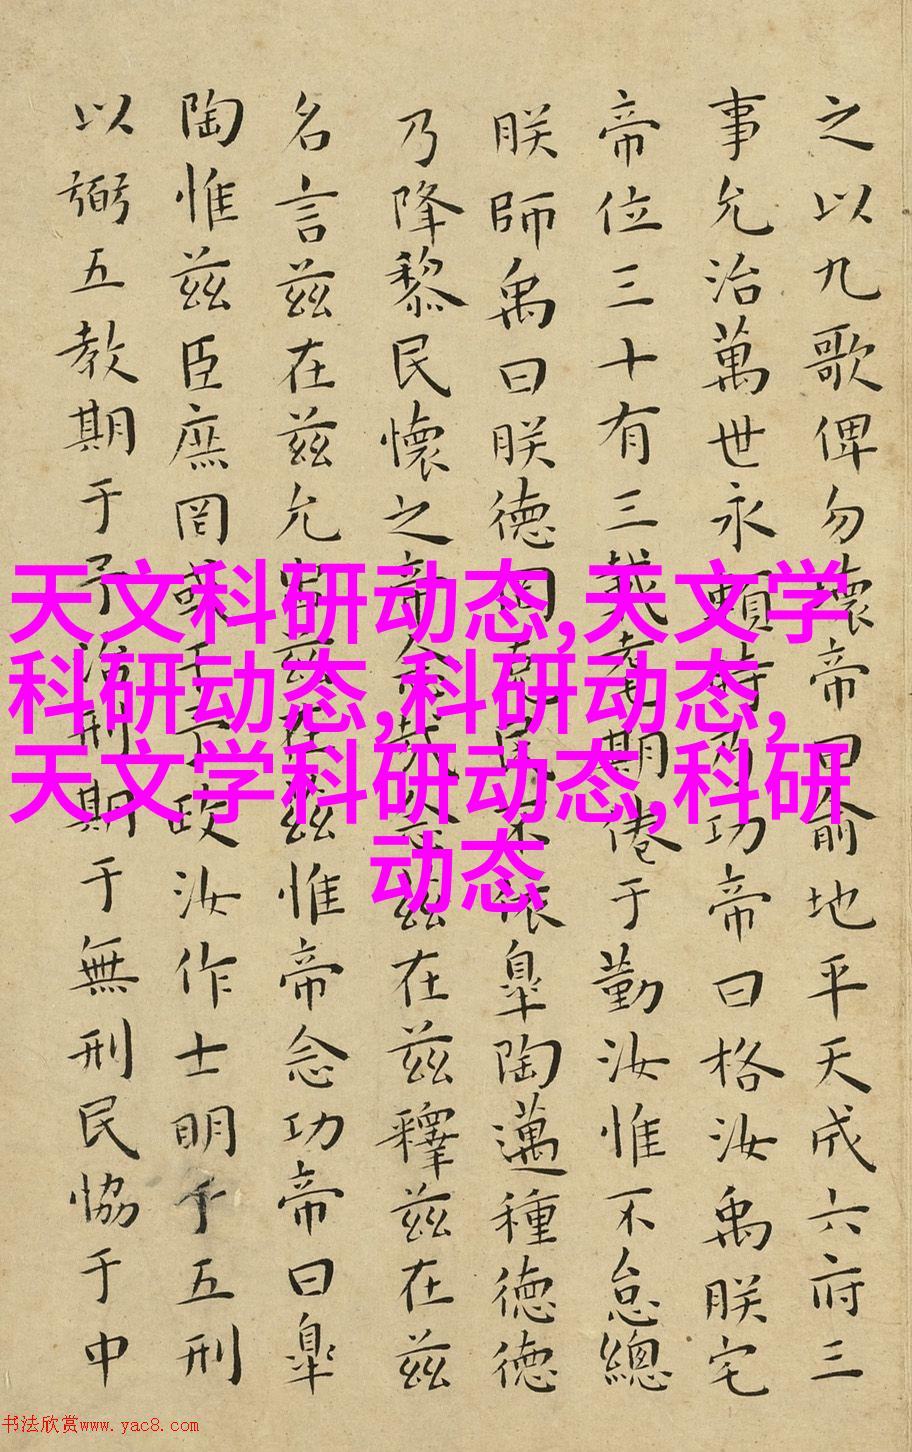 之以九歌俾勿壞帝曰俞地平天成六府三
事允治萬世永賴時乃功帝曰格汝禹朕宅
帝位三十有三載耄期倦于勤汝惟不怠總
朕師禹曰朕德罔克民不依皋陶邁種德德
乃降黎民懷之帝念哉念茲在茲釋茲在茲
名言茲在茲允出茲在茲惟帝念功帝曰皋
陶惟茲臣庶罔或干予政汝作士明于五刑
以弼五教期于予治刑期于無刑民協于中
天文科研动态,天文学
科研动态,科研动态,
天文学科研动态,科研
动态
书法欣赏www.yac8.com